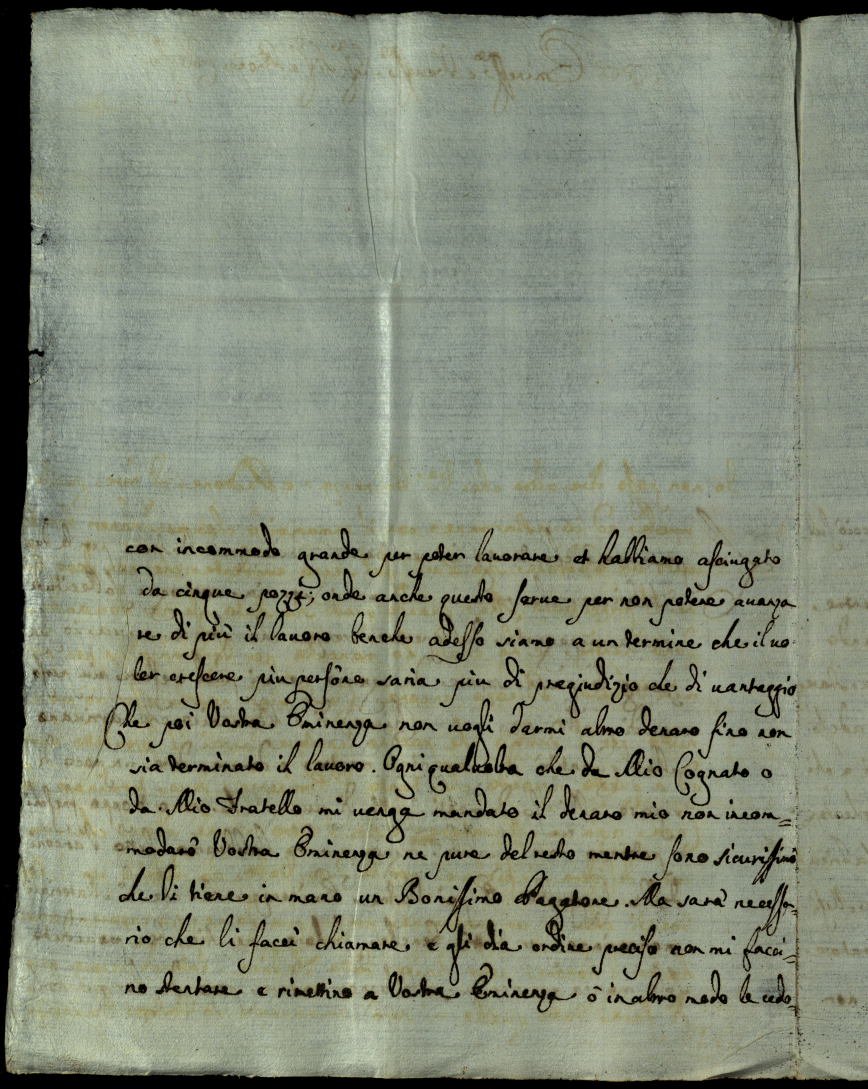 con incommodo grande per poter lavorare et habbiamo asciugato
da cinque pozze; onde anche questo serue per non potere auanza
re di più il lauoro benche adesso siamo a un termine che il uo
ler crescere più persone saria più di pregiudizio che di uantaggio
Che poi Vostra Eminenza non uogli darmi altro denaro fino non
sia terminato il lauoro. Ogni qualuolta che da Mio Cognato o
da Mio Fratello mi uenga mandato il denaro mio non incom=
modarò Vostra Eminenza ne pure del resto mentre sono sicurissimo
che li tiene in mano un Bonissimo Pagatore. Ma sarà necessa=
rio che li facci chiamare e gli dia ordine preciso non mi facci=
no stentare e rimettino a Vostra Eminenza ò in altro modo le cedo=